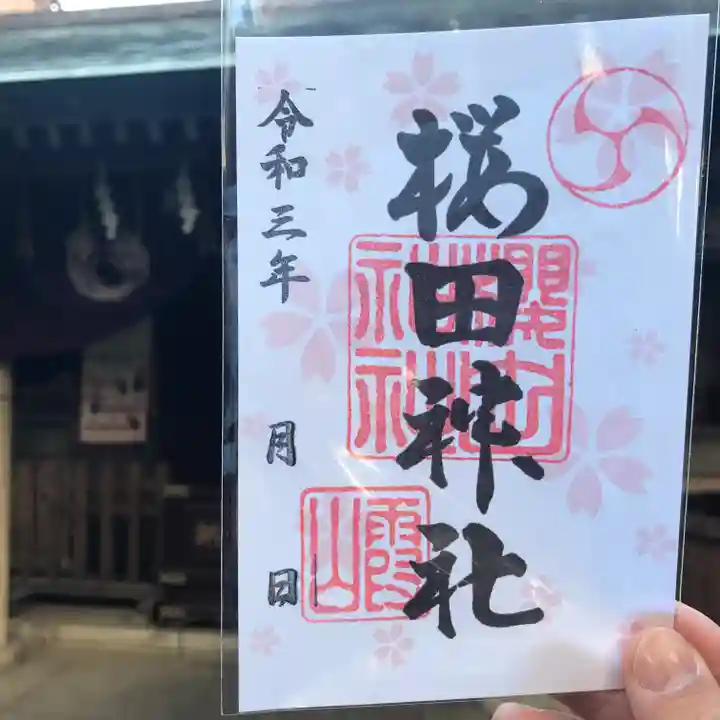 桜田神社
令和三年 月 日
霞山